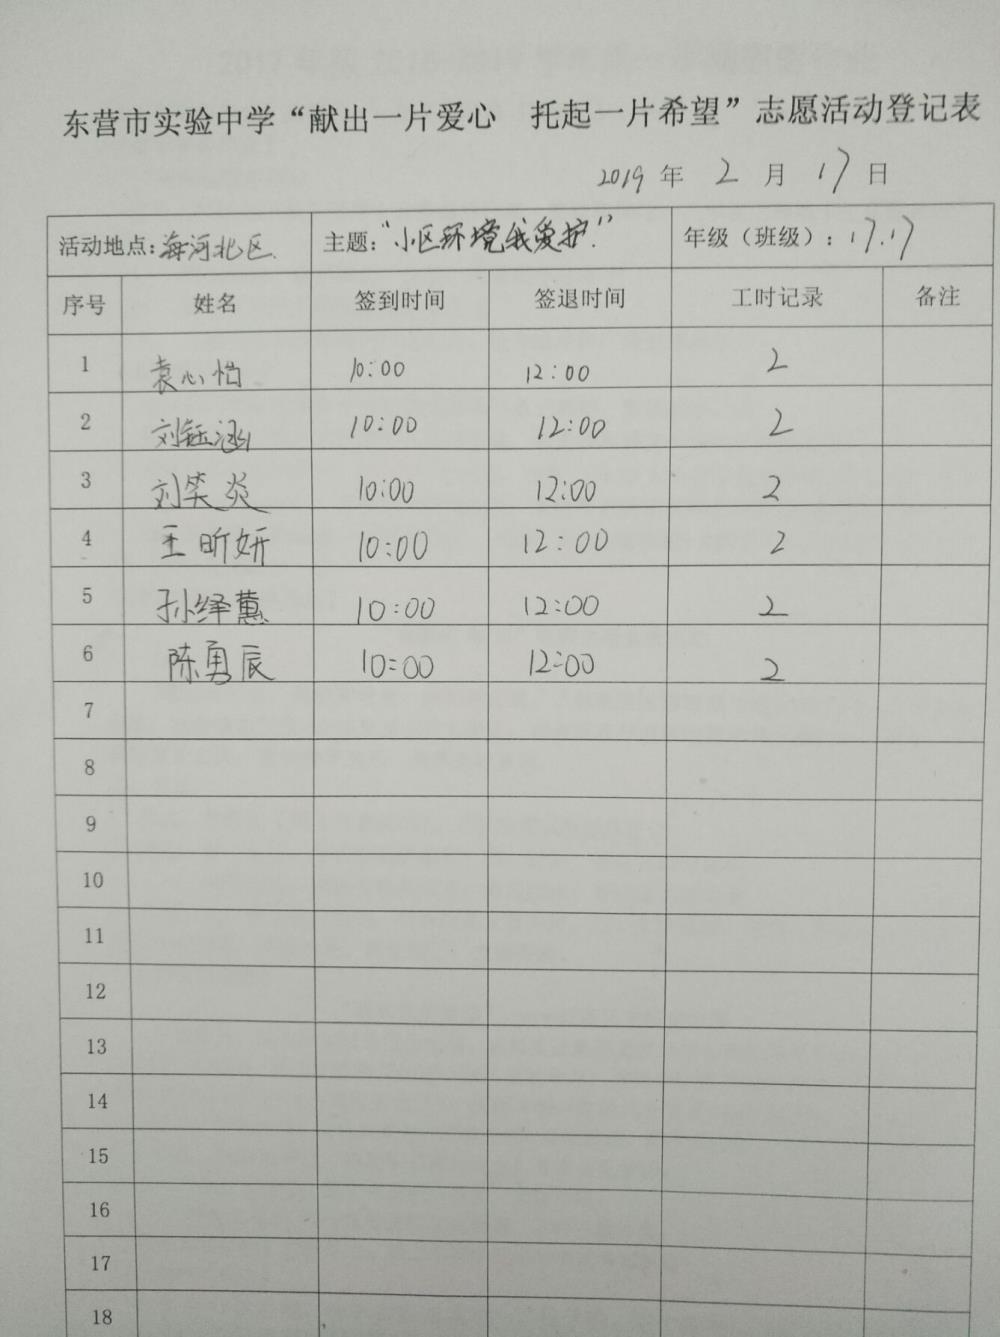 东营市实验中学“献出一片爱心 托起一片希望”志愿活动登记表
2019 年 2 月 17 日
活动地点:海河北区. 主题:“小区环境我爱护.” 年级（班级）:17.17
序号 姓名 签到时间 签退时间 工时记录 备注
1 袁心怡 10:00 12:00 2
2 刘钰涵 10:00 12:00 2
3 刘笑炎 10:00 12:00 2
4 王昕妍 10:00 12:00 2
5 孙绎蕙 10:00 12:00 2
6 陈勇辰 10:00 12:00 2
7
8
9
10
11
12
13
14
15
16
17
18